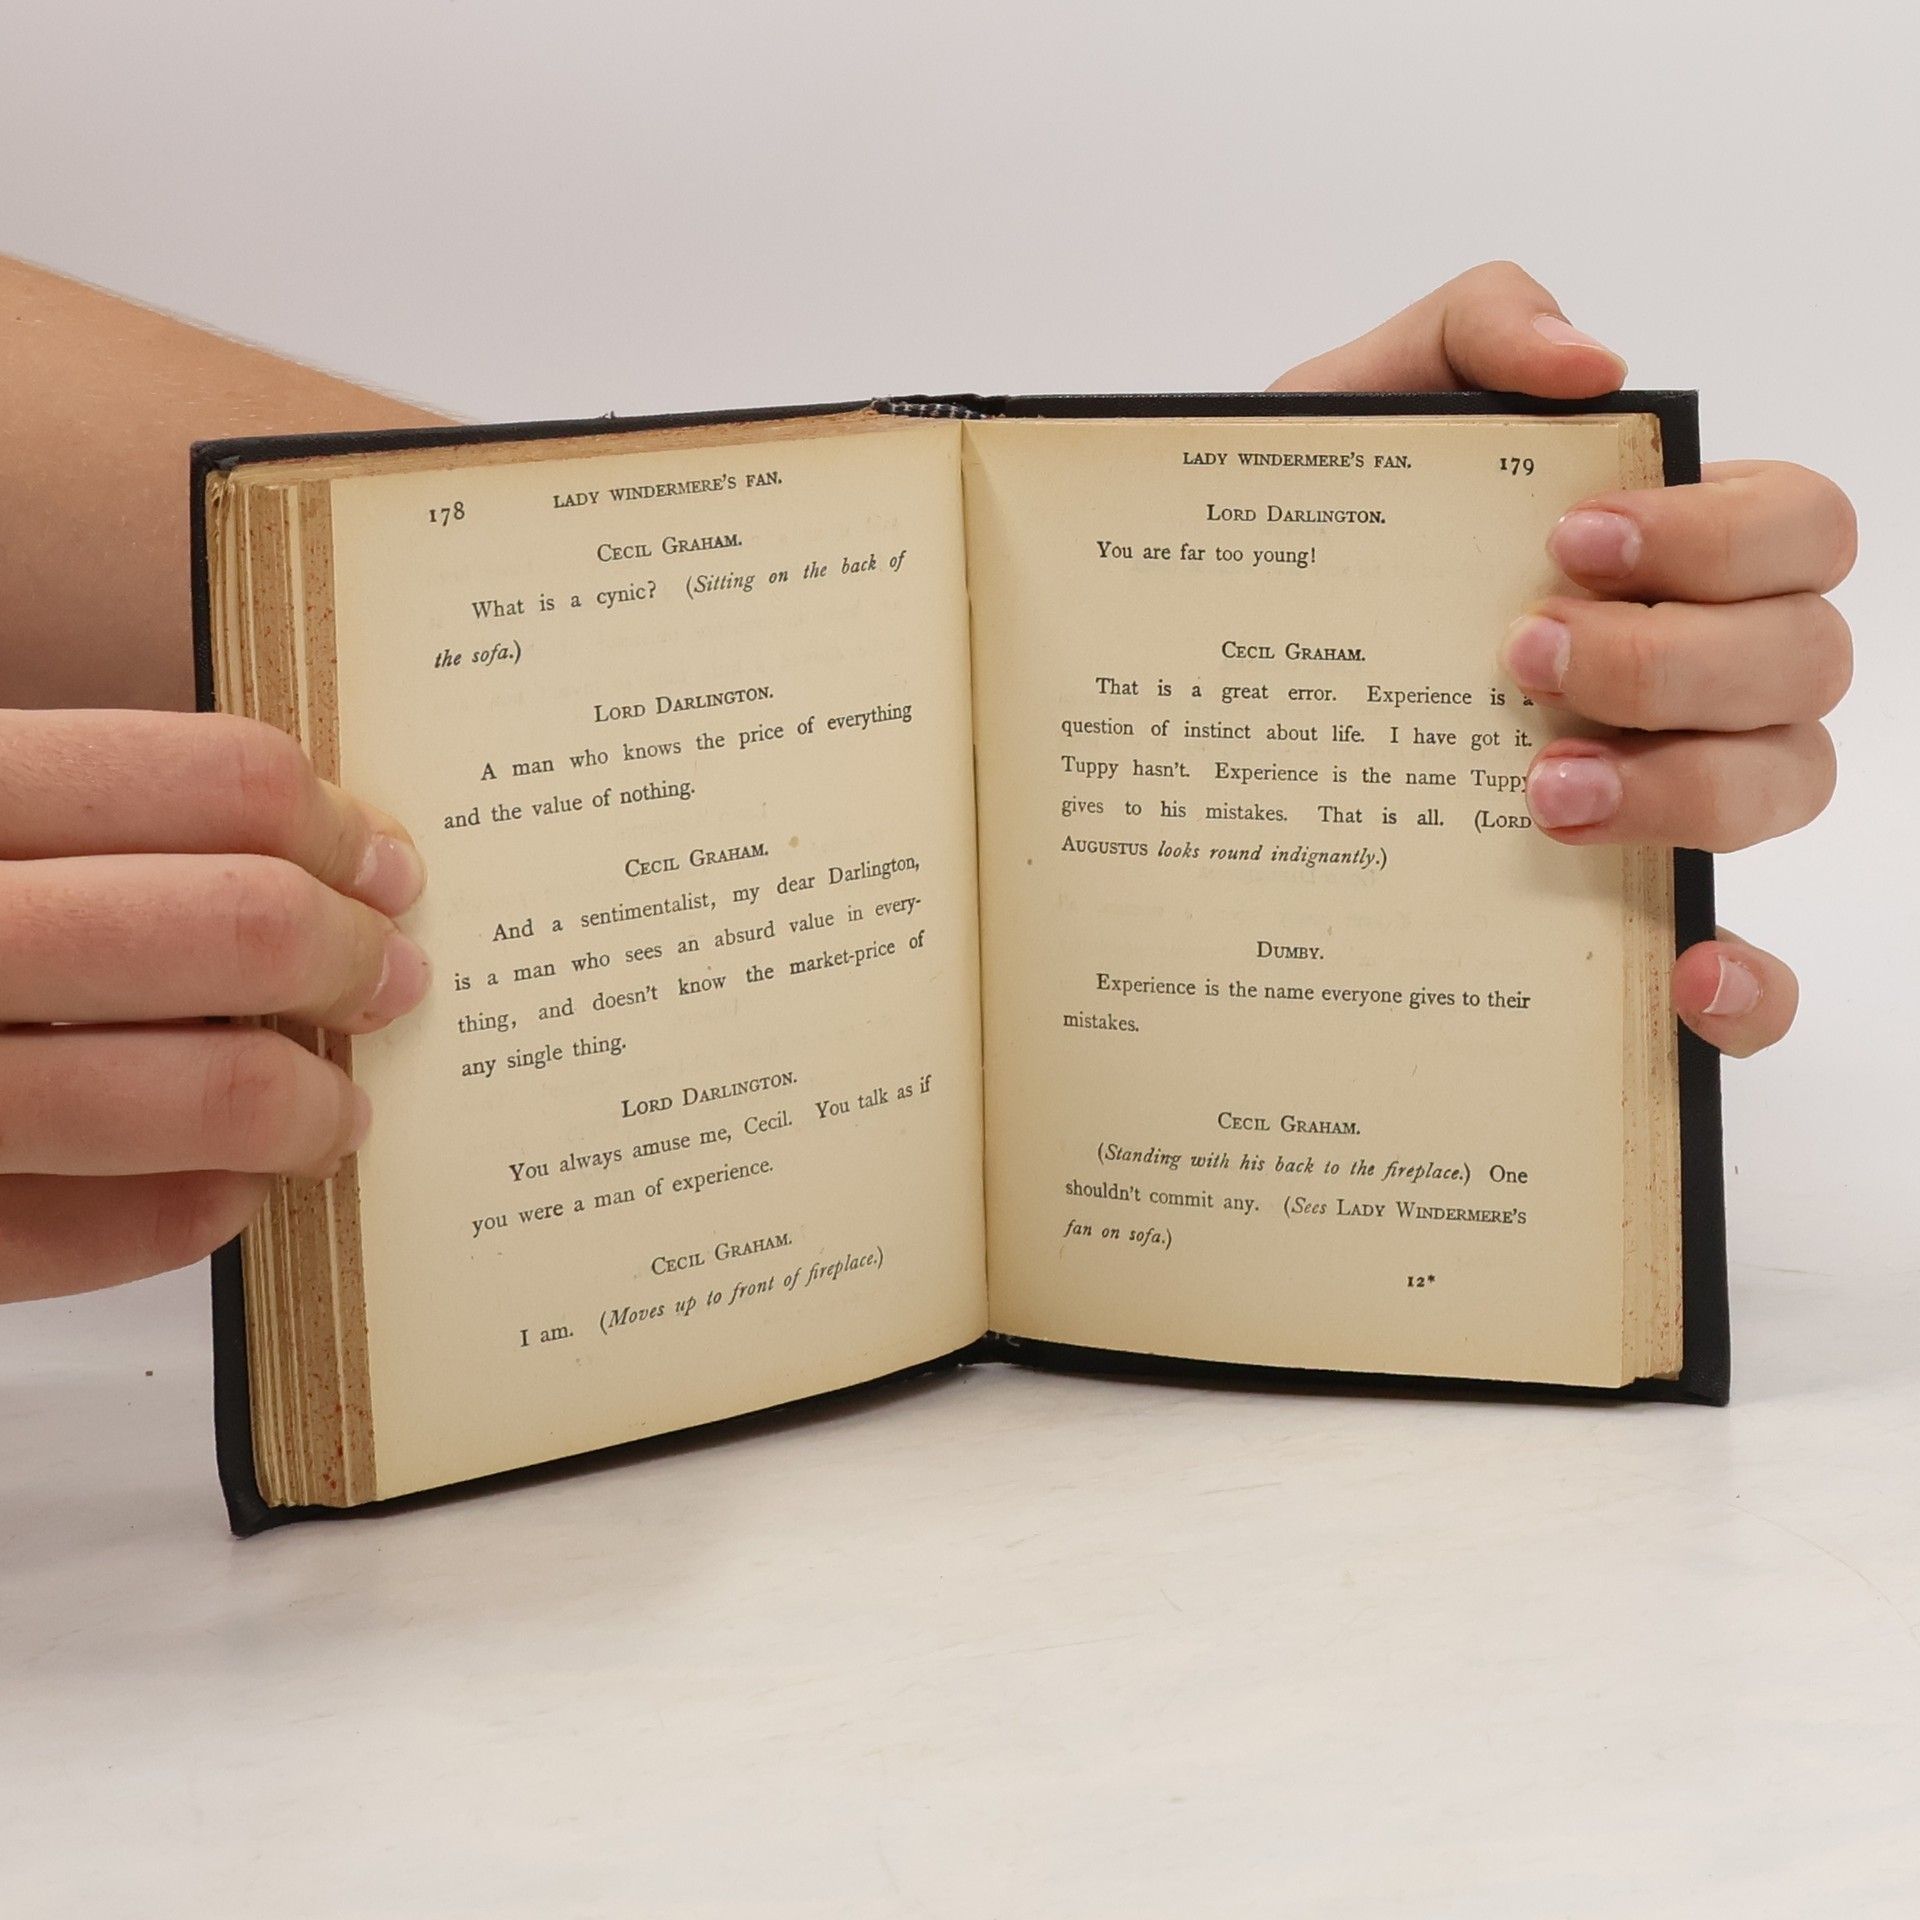 178 LADY WINDERMERE'S FAN.
CECIL GRAHAM.
What is a cynic? (Sitting on the back of
the sofa.)
LORD DARLINGTON.
A man who knows the price of everything
and the value of nothing.
CECIL GRAHAM.
And a sentimentalist, my dear Darlington,
is a man who sees an absurd value in every-
thing, and doesn't know the market-price of
any single thing.
LORD DARLINGTON.
You always amuse me, Cecil. You talk as if
you were a man of experience.
CECIL GRAHAM.
I am. (Moves up to front of fireplace.)
LADY WINDERMERE'S FAN. 179
LORD DARLINGTON.
You are far too young!
CECIL GRAHAM.
That is a great error. Experience is a
question of instinct about life. I have got it.
Tuppy hasn't. Experience is the name Tuppy
gives to his mistakes. That is all. (LORD
AUGUSTUS looks round indignantly.)
DUMBY.
Experience is the name everyone gives to their
mistakes.
CECIL GRAHAM.
(Standing with his back to the fireplace.) One
shouldn't commit any. (Sees LADY WINDERMERE'S
fan on sofa.)
12*